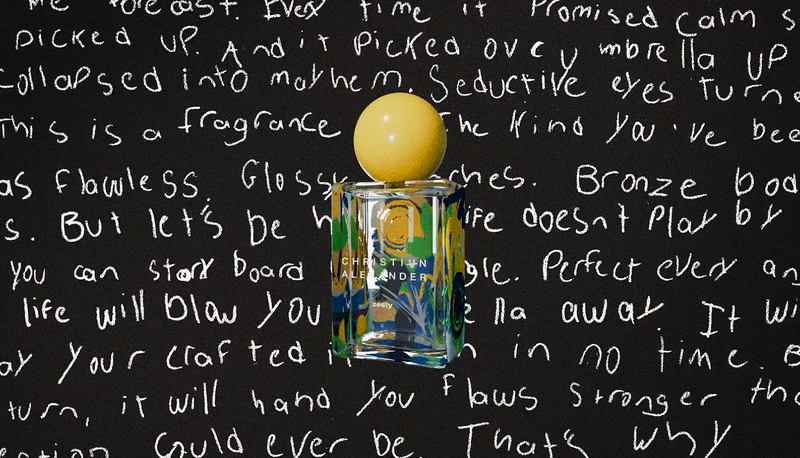 me forecast. Every time it Promised Calm s
picked up. And it picked up
Collapsed into mayhem. Seductive eyes turne
This is a fragrance The Kind You've bee
as flawless. Glossy ches. Bronze bod
s. But let's be h ife doesn't Play by
you can story board gle. Perfect every an
life will blow you e lla away. It wi
ay your crafted in no time. B
turn, it will hand you flaws stronger tha
ention could ever be. That's why
CHRISTIAN
ALEXANDER
zesty